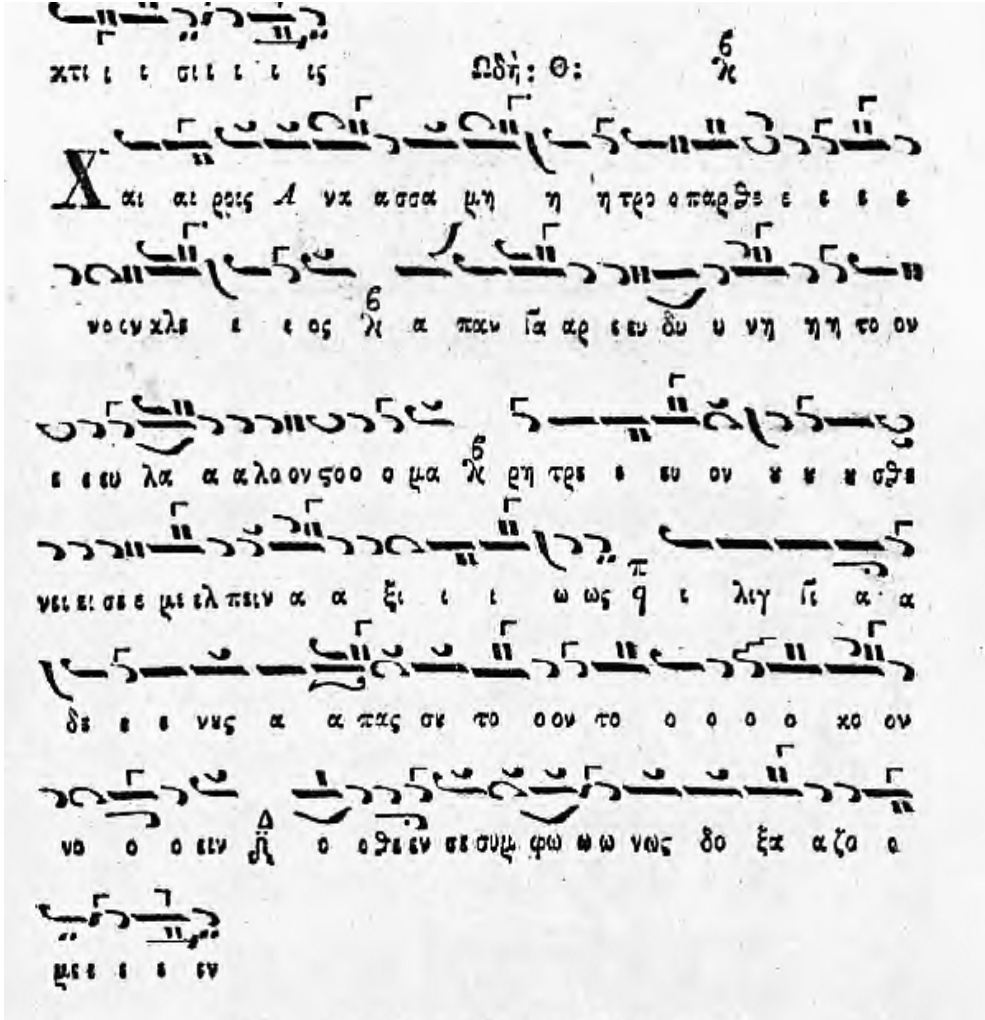 κτι ι ι σι ι ι ι ις
Ωδὴ: Θ:
Χαι αι ροις Α να α σσα μη η ή τρο ο παρ θε ε ε ε ε
νο εν κλε ε ε ος α παν Γα αρ ε ευ δυ υ νη η η το ον
ε ε ευ λα α α λο ον ςο ο ο μα ρη τρε ε ευ ον ȣ ȣ ȣ σθε
νει ει σε ε με ελ πειν α α ξι ι ι ω ως π q ι λιγ Γι α α
δε ε ε νȣς α α πας σε το ο ον το ο ο ο ο κο ον
νο ο ο ειν Δ ο ο θε εν σε συμ φω ω ω νως δο ξα α ζο ο
με ε ε ε εν